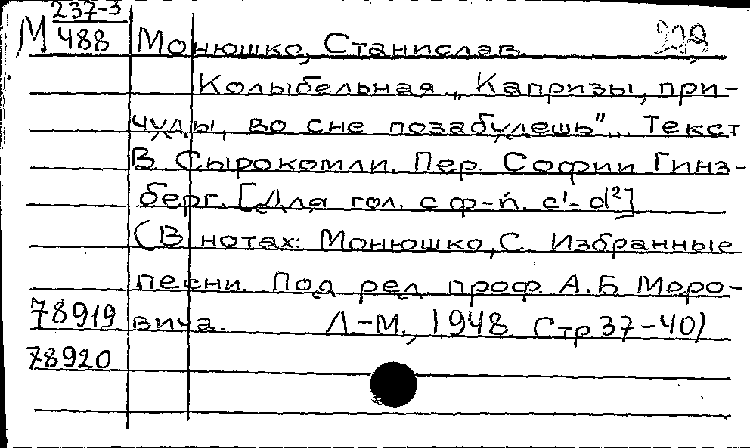 237-3
М 488 Монюшко, Станислав.
Колыбельная „Капризы, при-
чуды, во сне позабудешь“... Текст
В Сырокомли. Пер. Софии Гинз-
берг. [Для гол. с ф-п. c¹-d²]
(В нотах: Монюшко, С. Избранные
песни. Под ред. проф. А.Б Моро-
78919 вича. Л.-М., 1948 Стр 37-40)
78920